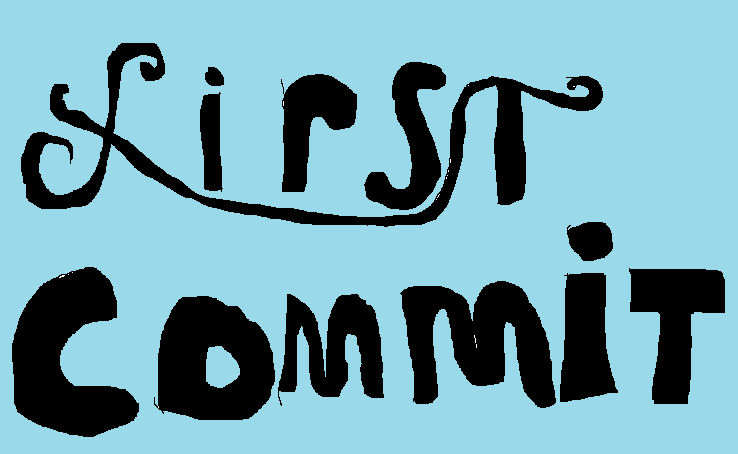 first
commit